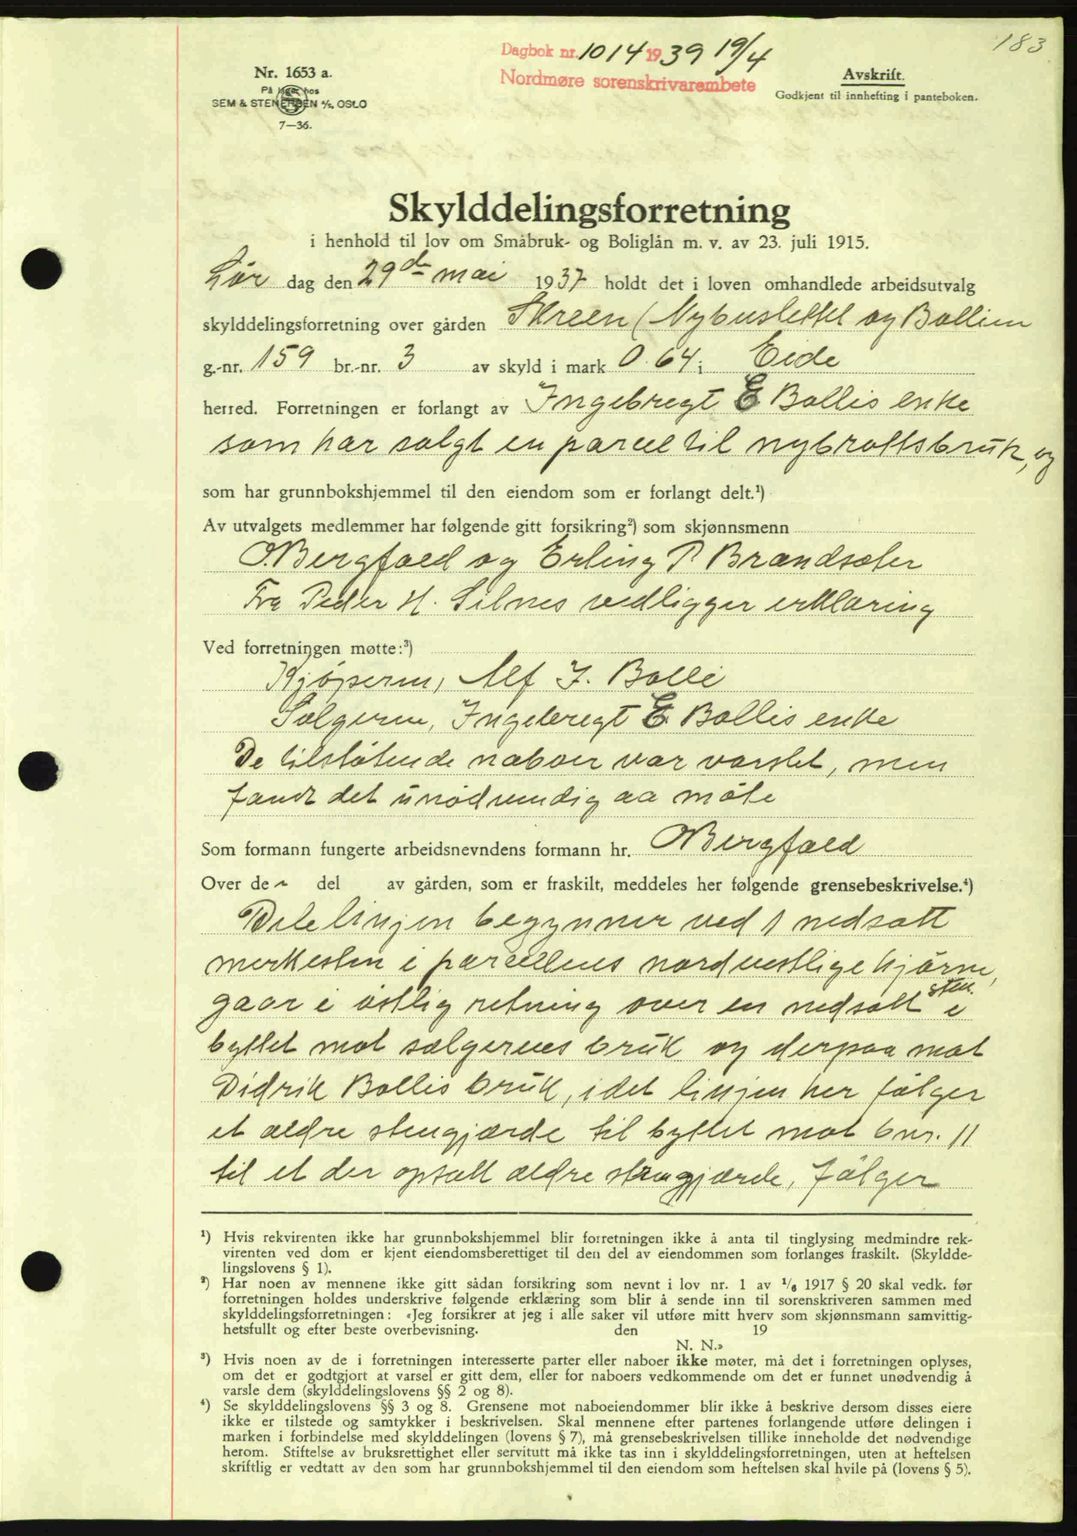 183
Dagbok nr. 1014 1939 19/4
Nordmøre sorenskrivarembete
Nr. 1653 a.
På lager hos
SEM & STENERSEN A/S, OSLO
7—36.
Avskrift.
Godkjent til innhefting i panteboken.
Skylddelingsforretning
i henhold til lov om Småbruk- og Boliglån m. v. av 23. juli 1915.
Lør dag den 29de mai 1937 holdt det i loven omhandlede arbeidsutvalg
skylddelingsforretning over gården Skreen (Nybuslettet og Bollien
g.-nr. 159 br.-nr. 3 av skyld i mark 0 64 i Eide
herred. Forretningen er forlangt av Ingebregt E Bollis enke
som har solgt en parcel til nybrottsbruk, og
som har grunnbokshjemmel til den eiendom som er forlangt delt.¹)
Av utvalgets medlemmer har følgende gitt forsikring²) som skjønnsmenn
O Bergfald og Erling P Brandsæter
Fra Peder H. Silnes vedligger erklæring
Ved forretningen møtte:³)
Kjøperen, Alf I. Bolli
Sælgeren, Ingebregt E. Bollis enke
De tilstøtende naboer var varslet, men
fandt det unødvendig aa møte
Som formann fungerte arbeidsnevndens formann hr. O Bergfald
Over de n del av gården, som er fraskilt, meddeles her følgende grensebeskrivelse.⁴)
Delelinjen begynner ved 1 nedsatt
merkesten i parcellens nordvestlige hjørne,
gaar i østlig retning over en nedsatt sten i
byttet mot sælgerens bruk og derpaa mot
Didrik Bollis bruk, idet linjen her følger
et ældre stengjærde til byttet mot bnr. 11
til et der opsatt ældre stengjærde, følger
¹) Hvis rekvirenten ikke har grunnbokshjemmel blir forretningen ikke å anta til tinglysing medmindre rek-
virenten ved dom er kjent eiendomsberettiget til den del av eiendommen som forlanges fraskilt. (Skyldde-
lingslovens § 1).
²) Har noen av mennene ikke gitt sådan forsikring som nevnt i lov nr. 1 av 1/6 1917 § 20 skal vedk. før
forretningen holdes underskrive følgende erklæring som blir å sende inn til sorenskriveren sammen med
skylddelingsforretningen: «Jeg forsikrer at jeg i alle saker vil utføre mitt hverv som skjønnsmann samvittig-
hetsfullt og efter beste overbevisning. den 19
N. N.»
³) Hvis noen av de i forretningen interesserte parter eller naboer ikke møter, må det i forretningen oplyses,
om det er godtgjort at varsel er gitt dem, eller for naboers vedkommende om det er funnet unødvendig å
varsle dem (skylddelingslovens §§ 2 og 8).
⁴) Se skylddelingslovens §§ 3 og 8. Grensene mot naboeiendommer blir ikke å beskrive dersom disses eiere
ikke er tilstede og samtykker i beskrivelsen. Skal mennene efter partenes forlangende utføre delingen i
marken i forbindelse med skylddelingen (lovens § 7), må grensebeskrivelsen tillike inneholde det nødvendige
herom. Stiftelse av bruksrettighet eller servitutt må ikke tas inn i skylddelingsforretningen, uten at heftelsen
skriftlig er vedtatt av den som har grunnbokshjemmel til den eiendom som heftelsen skal hvile på (lovens § 5).